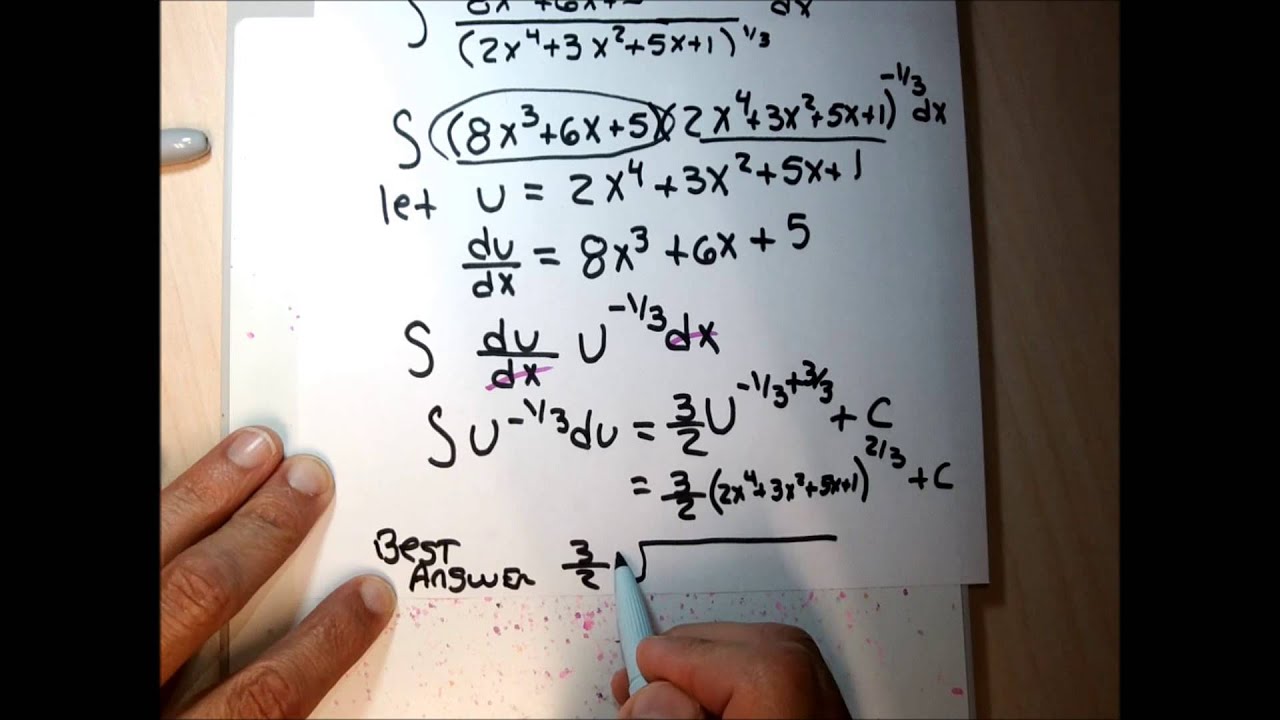 ∫ 8x³+6x+ dx
(2x⁴+3x²+5x+1)^1/3
∫ (8x³+6x+5)(2x⁴+3x²+5x+1)^-1/3 dx
let u = 2x⁴+3x²+5x+1
du/dx = 8x³+6x+5
∫ du/dx u^-1/3 dx
∫u^-1/3 du = 3/2 u^-1/3+3/3 + C
= 3/2 (2x⁴+3x²+5x+1)^2/3 + C
Best
Answer 3/2 √